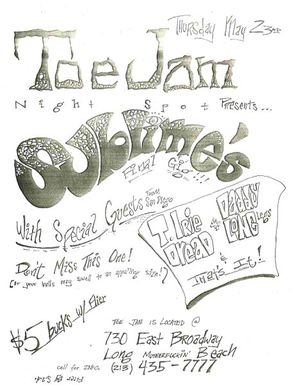 Thursday May 23rd
Toe Jam
Night Spot Presents...
Sublime's
Final Gig!!!
With Special Guests From San Diego
T. Irie Dread
Daddy Long Legs
Don't Miss This One!
(or your balls may swell to an appalling size!)
That's It!
$5 bucks w/ Flier
TOE JAM IS LOCATED @
730 East Broadway
Long Motherfuckin' Beach
call for INFO. (213) 435-7777